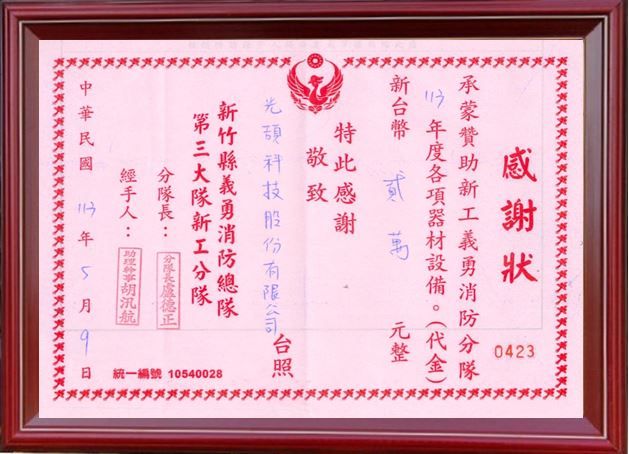 感謝狀
0423
承蒙贊助新工義勇消防分隊
113年度各項器材設備。(代金)
新台幣 貳萬 元整
特此感謝
敬致
光頡科技股份有限公司 台照
新竹縣義勇消防總隊
第三大隊新工分隊
分隊長：分隊長盧德正
經手人：助理幹事胡汎航
中華民國 113 年 5 月 9 日
統一編號 10540028